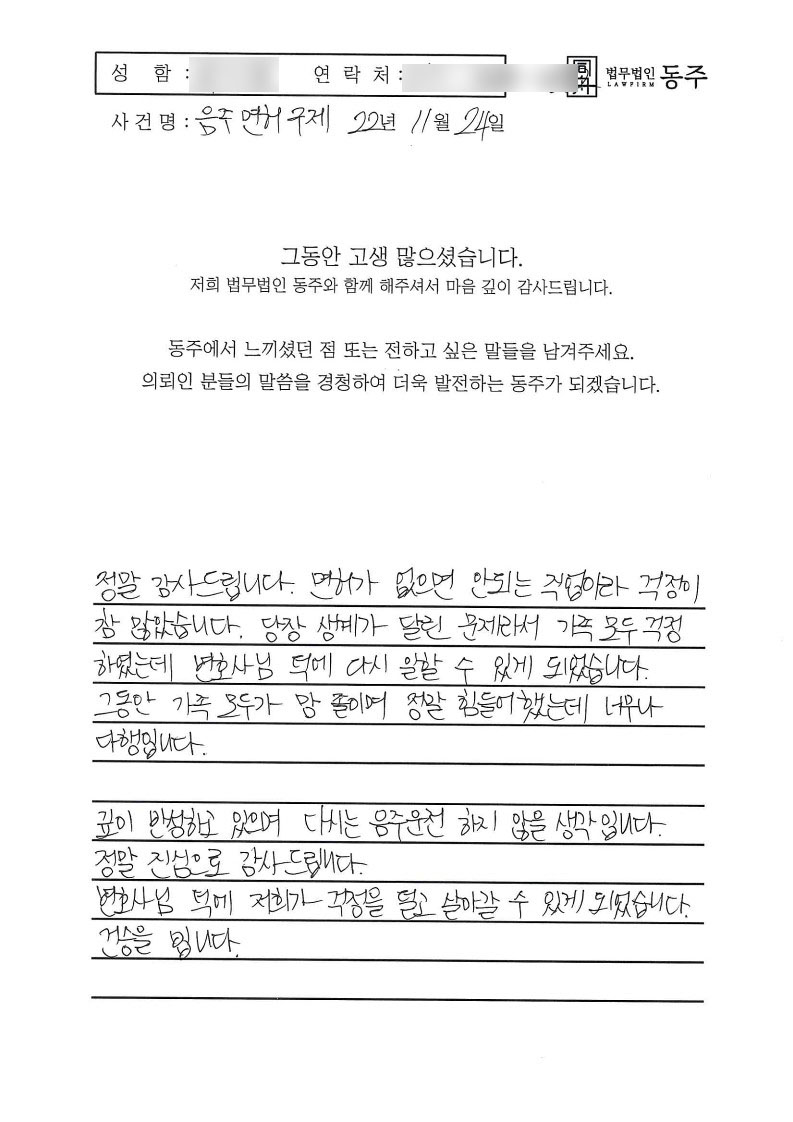 성 함 : 연 락 처 : 법무법인 동주
LAWFIRM
사 건 명 : 음주 면허 구제 22년 11월 24일
그동안 고생 많으셨습니다.
저희 법무법인 동주와 함께 해주셔서 마음 깊이 감사드립니다.
동주에서 느끼셨던 점 또는 전하고 싶은 말들을 남겨주세요.
의뢰인 분들의 말씀을 경청하여 더욱 발전하는 동주가 되겠습니다.
정말 감사드립니다. 면허가 없으면 안되는 직업이라 걱정이
참 많았습니다. 당장 생계가 달린 문제라서 가족 모두 걱정
하였는데 변호사님 덕에 다시 일할 수 있게 되었습니다.
그동안 가족 모두가 맘 졸이며 정말 힘들어했는데 너무나
다행입니다.
깊이 반성하고 있으며 다시는 음주운전 하지 않을 생각입니다.
정말 진심으로 감사드립니다.
변호사님 덕에 저희가 걱정을 덜고 살아갈 수 있게 되었습니다.
건승을 빕니다.